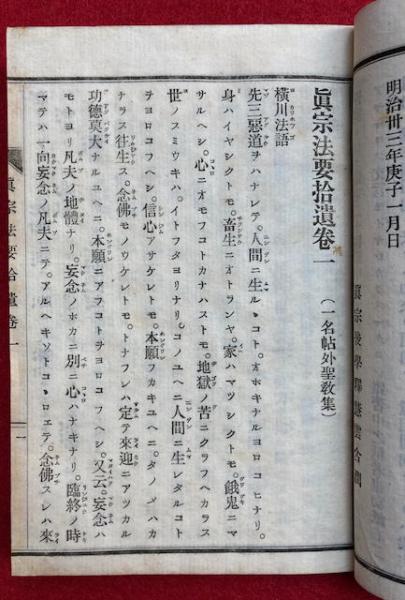 明治卅三年庚子一月日
眞宗後學釋慈雲合閲
眞宗法要拾遺卷一
(一名帖外聖教集)
橫川法語
先三惡道ヲハナレテ。人間ニ生ルヽコト。オホキナルヨロコヒナリ。
身ハイヤシクトモ。畜生ニオトランヤ。家ハマツシクトモ。餓鬼ニマ
サルヘシ。心ニオモフコトカナハストモ。地獄ノ苦ニクラフヘカラス
世ノスミウキハ。イトフタヨリナリ。コノユヘニ人間ニ生レタルコト
ヲヨロコフヘシ。信心アサケレトモ。本願フカキユヘニ。タノメハカ
ナラス往生ス。念佛モノウケレトモ。トナフレハ定テ來迎ニアツカル
功德莫大ナルユヘニ。本願ニアフコトヲヨロコフヘシ。又云。妄念ハ
モトヨリ凡夫ノ地體ナリ。妄念ノホカニ別ニ心ハナキナリ。臨終ノ時
マテハ一向妄念ノ凡夫ニテ。アルヘキソトコヽロエテ。念佛スレハ來
眞宗法要拾遺卷一
一